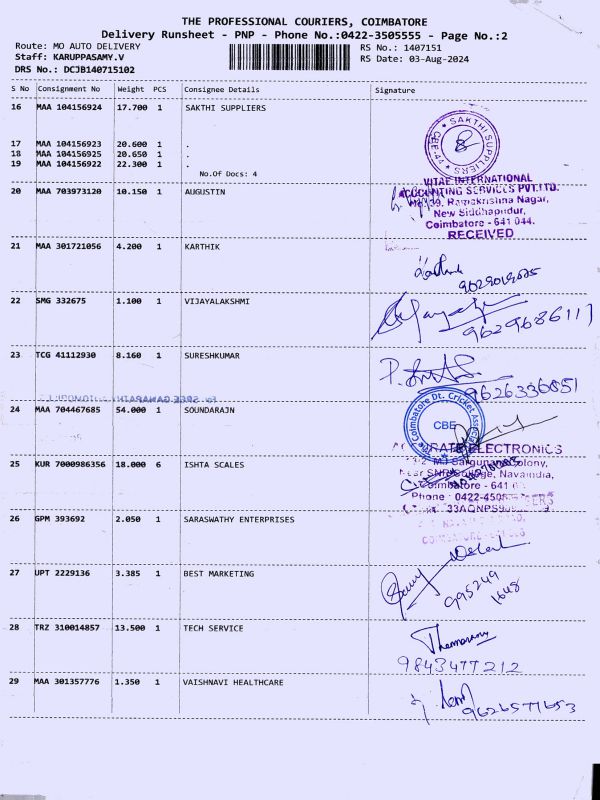 THE PROFESSIONAL COURIERS, COIMBATORE
Delivery Runsheet - PNP - Phone No.:0422-3505555 - Page No.:2
Route: MO AUTO DELIVERY
Staff: KARUPPASAMY.V
DRS No.: DCJB140715102
RS No.: 1407151
RS Date: 03-Aug-2024
S No Consignment No Weight PCS Consignee Details Signature
16 MAA 104156924 17.700 1 SAKTHI SUPPLIERS
SAKTHI SUPPLIERS
CBE-44
17 MAA 104156923 20.600 1 .
18 MAA 104156925 20.650 1 .
19 MAA 104156922 22.300 1 .
No.Of Docs: 4
VITAE INTERNATIONAL
ACCOUNTING SERVICES PVT.LTD.
Ramakrishna Nagar,
New Siddhapudur,
Coimbatore - 641 044.
RECEIVED
20 MAA 703973120 10.150 1 AUGUSTIN
21 MAA 301721056 4.200 1 KARTHIK
22 SMG 332675 1.100 1 VIJAYALAKSHMI
9629686117
23 TCG 41112930 8.160 1 SURESHKUMAR
9626336851
24 MAA 704467685 54.000 1 SOUNDARAJN
The Coimbatore Dt. Cricket
CBE
25 KUR 7000986356 18.000 6 ISHTA SCALES
ELECTRONICS
Colony,
College, Navaindia,
Coimbatore - 641
Phone : 0422-
26 GPM 393692 2.050 1 SARASWATHY ENTERPRISES
27 UPT 2229136 3.385 1 BEST MARKETING
995249
1648
28 TRZ 310014857 13.500 1 TECH SERVICE
9843477212
29 MAA 301357776 1.350 1 VAISHNAVI HEALTHCARE
9626577653